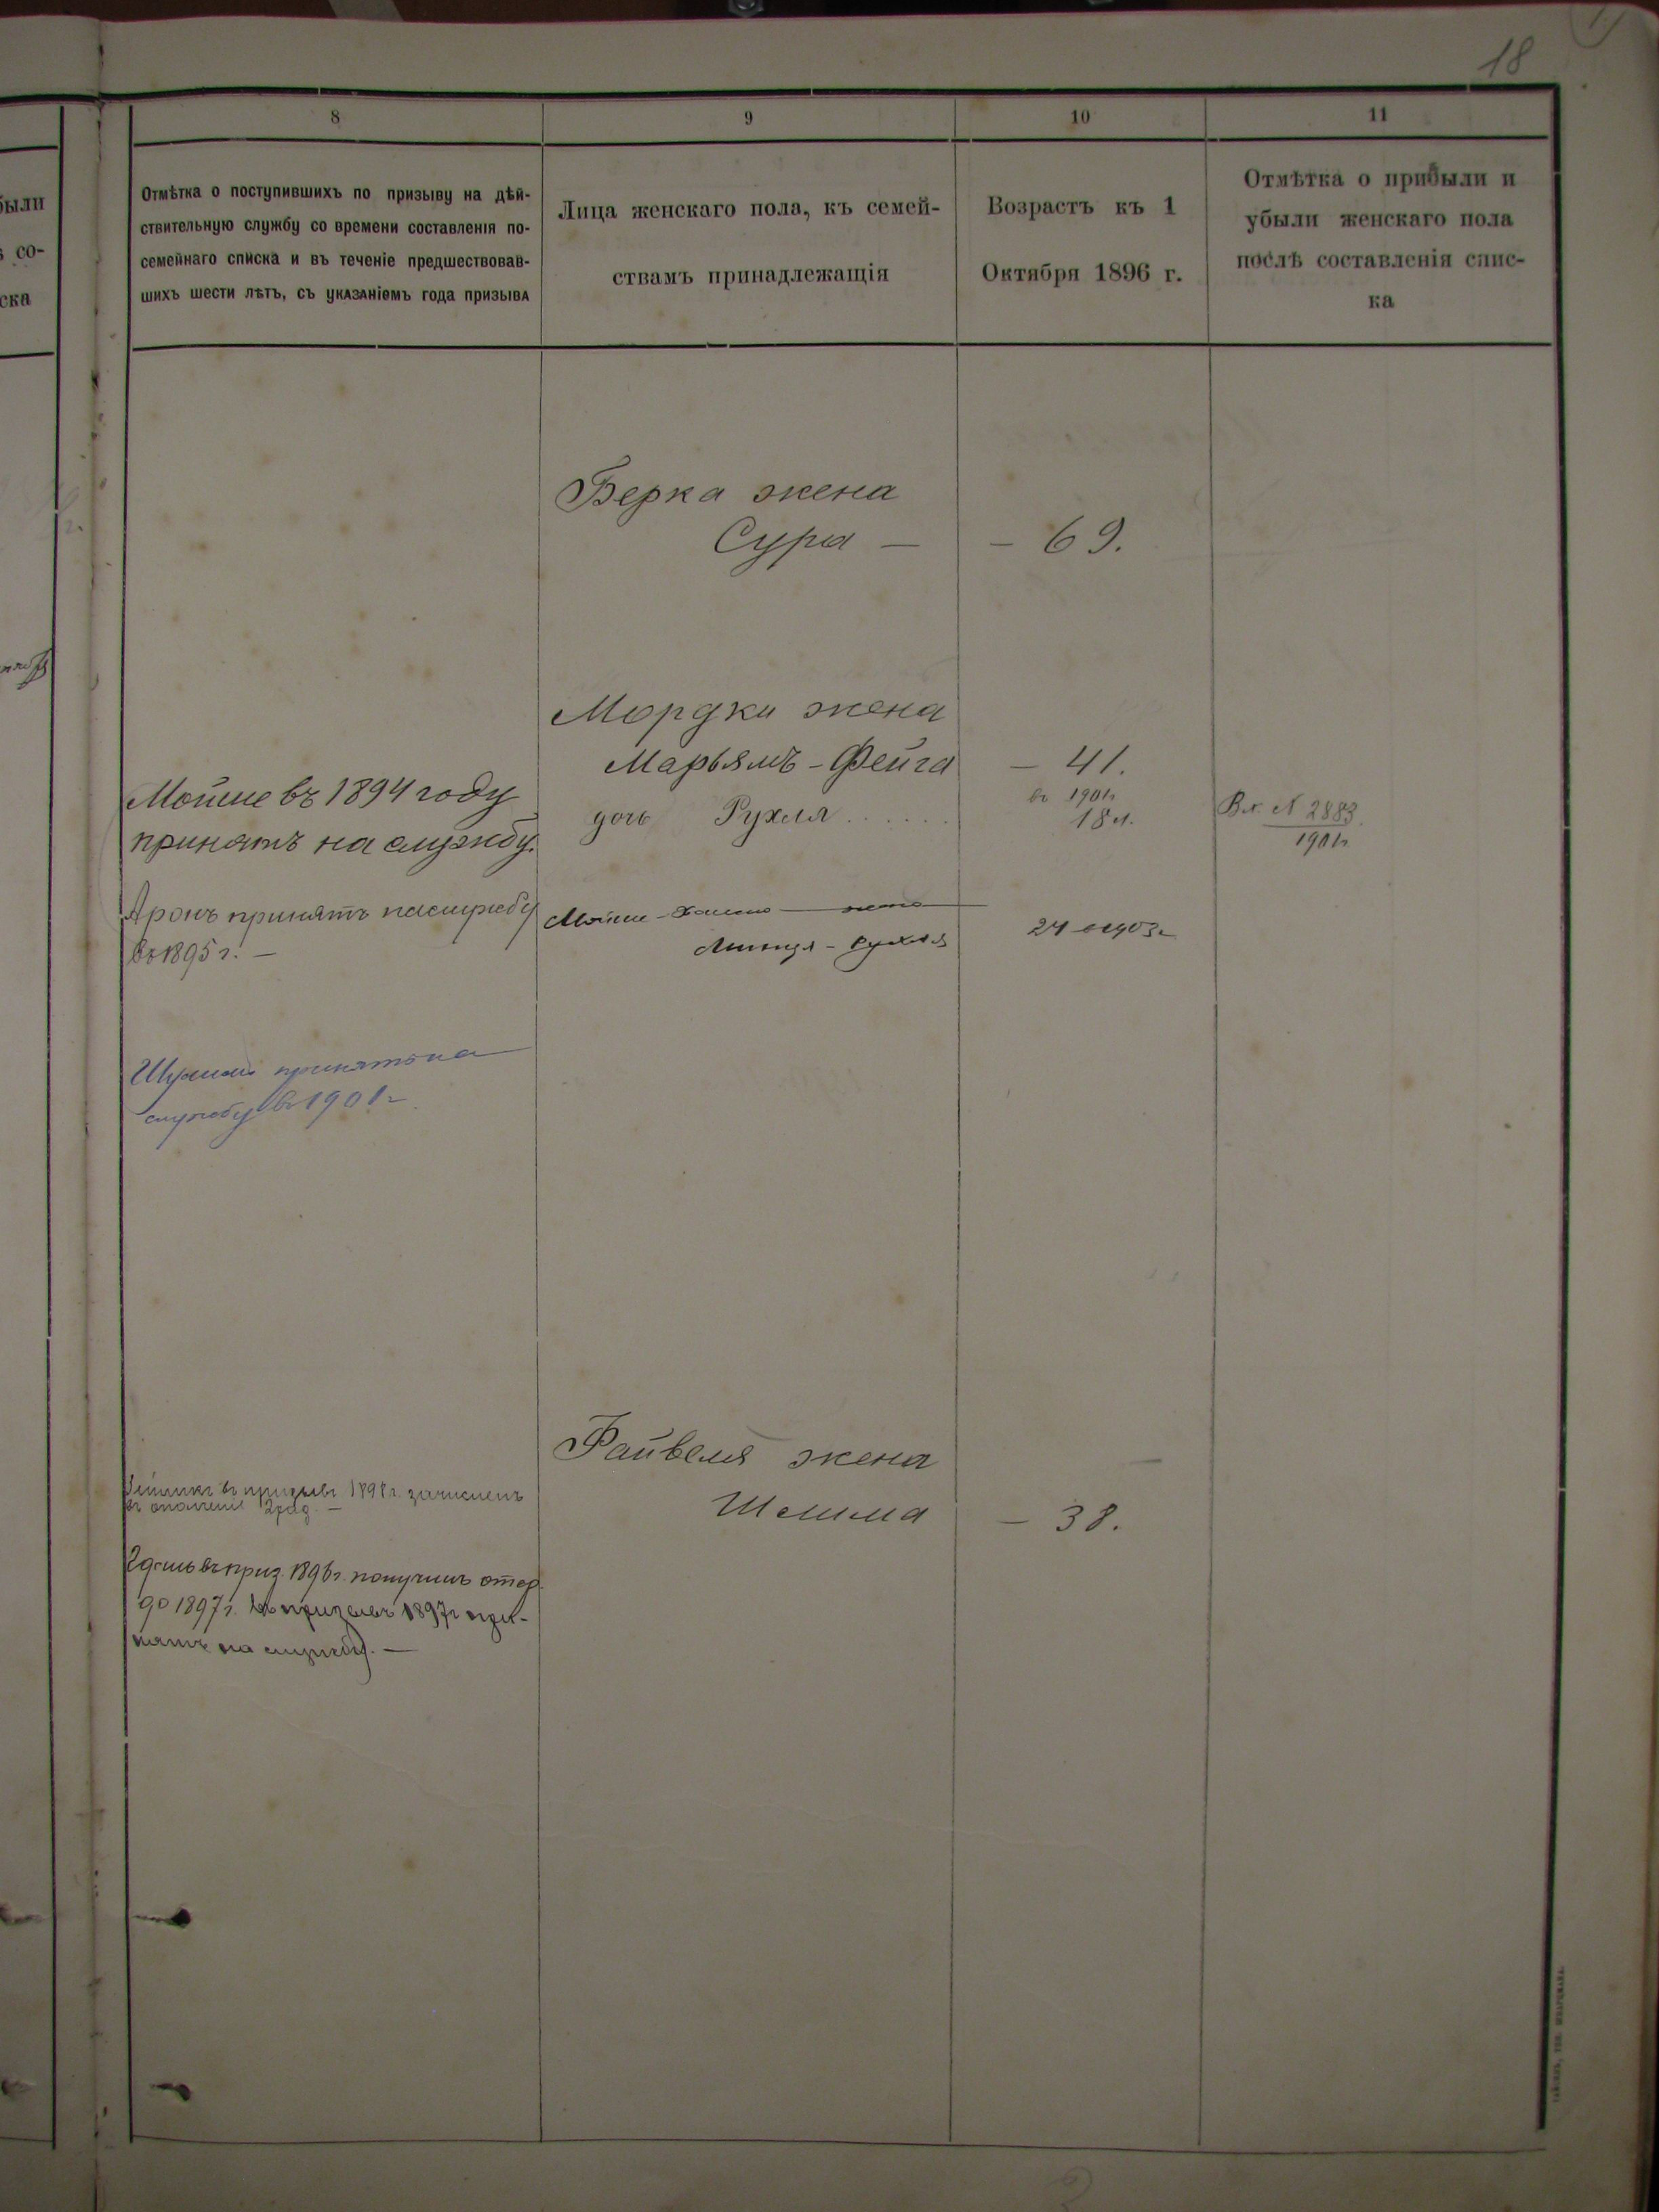 18
8
9
10
11
Отмѣтка о поступившихъ по призыву на дѣй-
ствительную службу со времени составленія по-
семейнаго списка и въ теченіе предшествовав-
шихъ шести лѣтъ, съ указаніемъ года призыва
Лица женскаго пола, къ семей-
ствамъ принадлежащія
Возрастъ къ 1
Октября 1896 г.
Отмѣтка о прибыли и
убыли женскаго пола
послѣ составленія спис-
ка
были
со-
ска
Берка жена
Сура — — 69.
Мордки жена
Марьямъ-Фейга — 41.
дочь Рухля . . . . . .
въ 1901г
18 л.
Вх. № 2883
1901г
Мойше въ 1894 году
принятъ на службу.
Аронъ принятъ на службу
въ 1895 г. —
Мойше- жена
Рухля
24 1903г
принятъ на
службу въ 1901г
Файвеля жена
Шелима — 38.
въ призывъ 1898 г. зачисленъ
въ ополченіе 2 раз. —
въ приз. 1896г. получилъ отср.
до 1897 г. въ призывъ 1897г при-
нятъ на службу. —